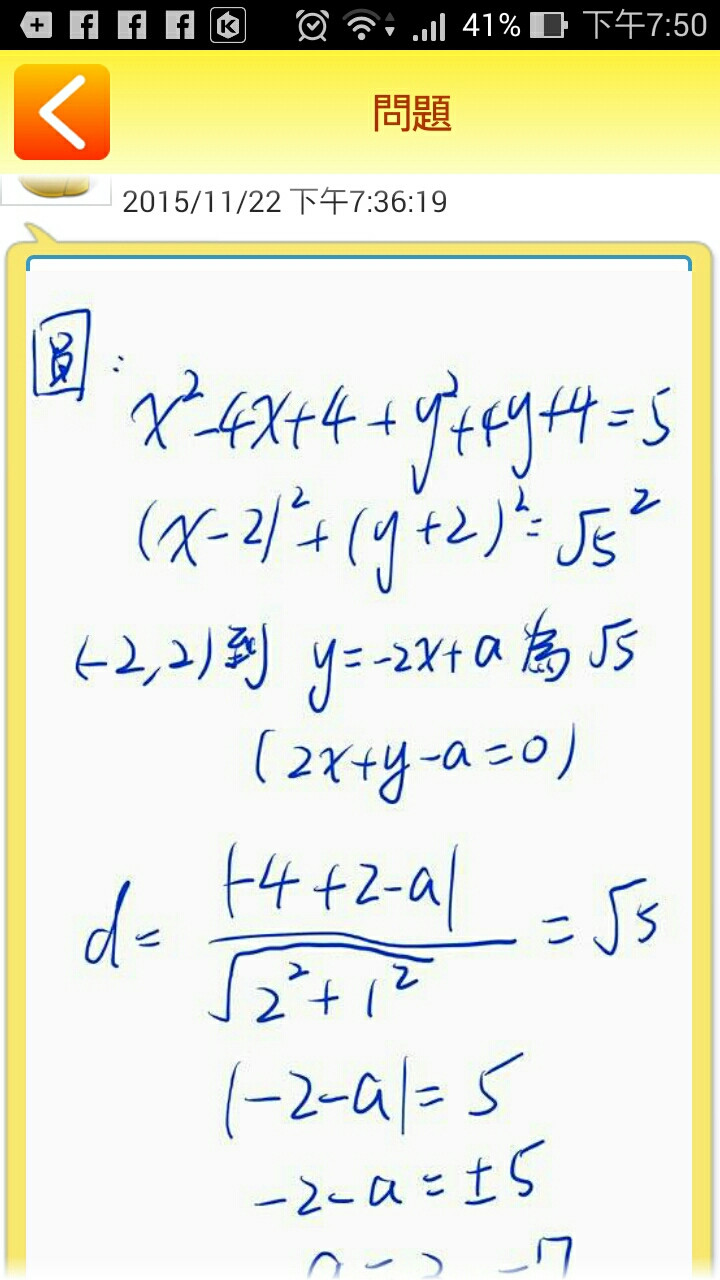 41% 下午7:50
問題
2015/11/22 下午7:36:19
圓:
x²-4x+4+y²+4y+4=5
(x-2)²+(y+2)²=√5²
(-2,2)到 y=-2x+a 為 √5
(2x+y-a=0)
d= |-4+2-a| / √2²+1² = √5
|-2-a|=5
-2-a=±5